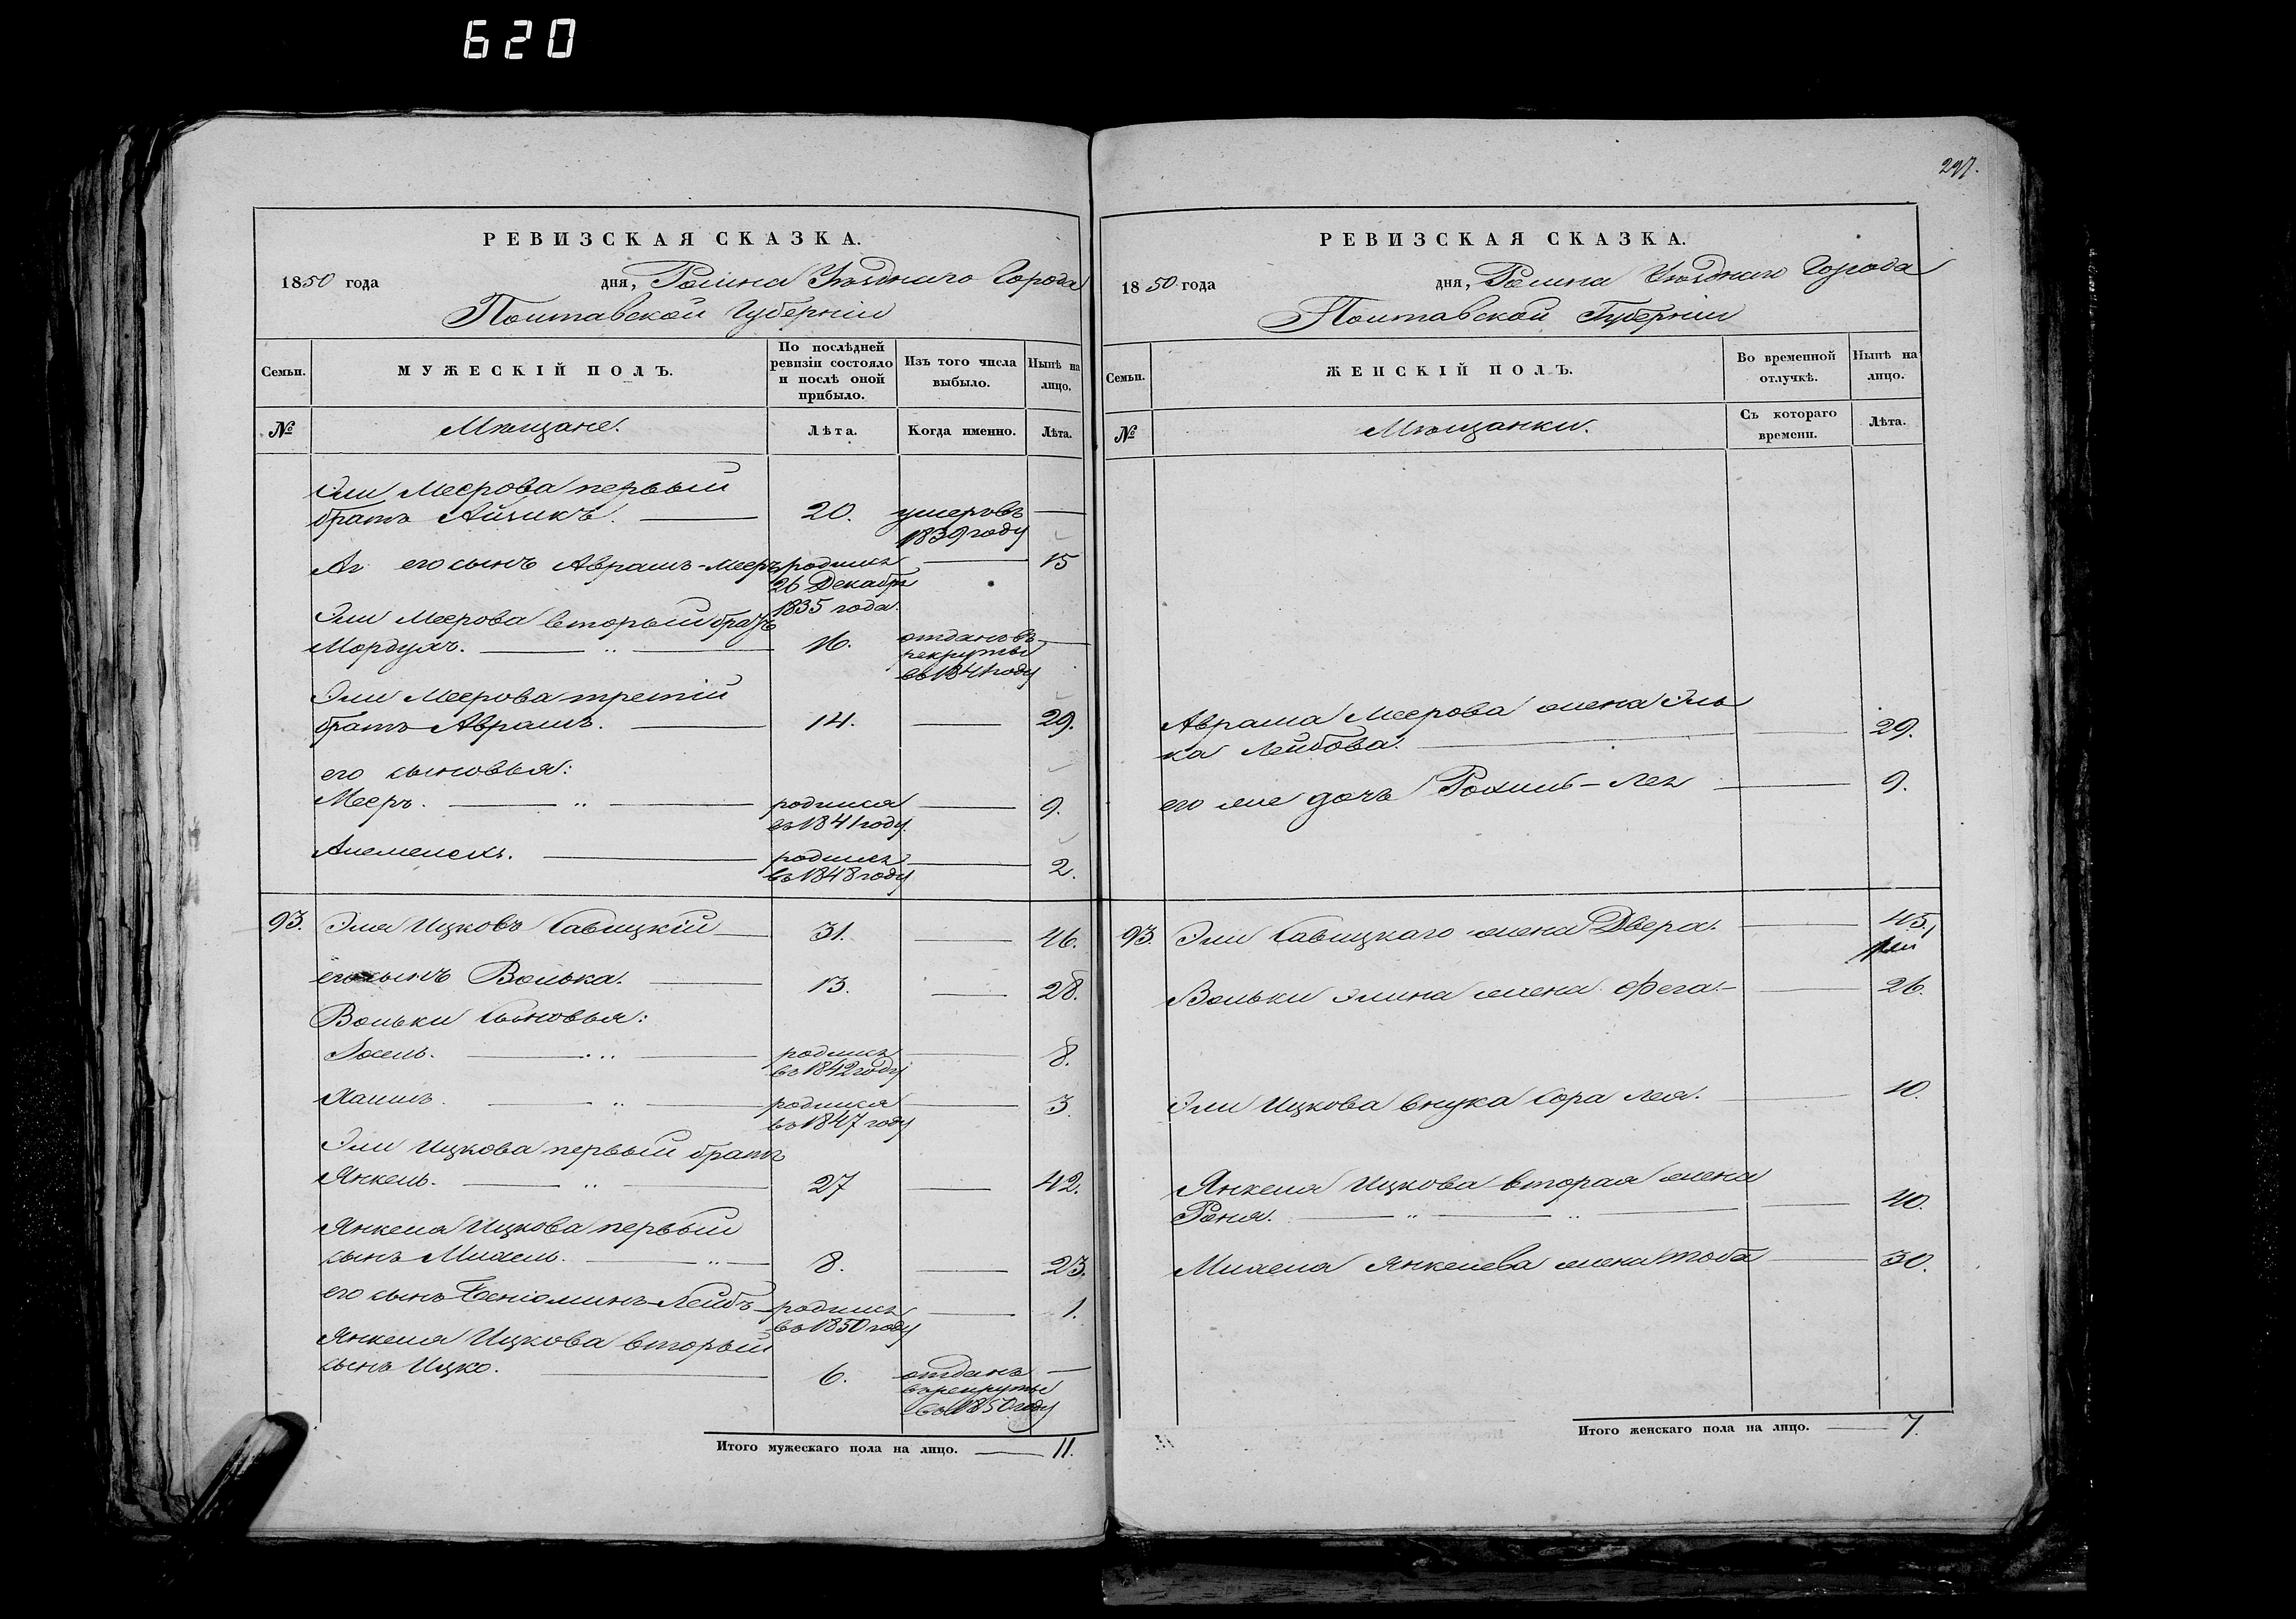 620
РЕВИЗСКАЯ СКАЗКА.
1850 года дня, Ромна Уѣзднаго Города
Полтавской Губерніи
Семьи. МУЖЕСКІЙ ПОЛЪ. По послѣдней ревизіи состояло и послѣ оной прибыло. Изъ того числа выбыло. Нынѣ на лицо.
№ Мѣщане. Лѣта. Когда именно. Лѣта.
Эли Меерова первый
братъ Айзикъ. 20. умеръ въ
1839 году
Аг его сынъ Аврамъ-Мееръ родился 15
26 Декабря
1835 года.
Эли Меерова вторый братъ
Мордухъ. 16. отданъ въ
рекруты
въ 1841 году
Эли Меерова третій
братъ Аврамъ. 14. 29.
его сыновья:
Мееръ. родился 9.
въ 1841 году.
родился 2.
въ 1848 году
93. Эля Ицковъ Савицкій 31. 46.
его сынъ Волька. 13. 28.
Вольки Сыновья:
Іосель. родился 8.
въ 1842 году
Хаимъ. родился 3.
въ 1847 году
Эли Ицкова первый братъ
Янкель. 27 42.
Янкеля Ицкова первый
сынъ Михель. 8. 23.
его сынъ Беніоминъ-Лейбъ родился 1.
въ 1850 году
Янкеля Ицкова вторый
сынъ Ицко. 6. отданъ
въ рекруты
въ 1850 году
Итого мужескаго пола на лицо. 11.
297.
РЕВИЗСКАЯ СКАЗКА.
1850 года дня, Ромна Уѣзднаго Города
Полтавской Губерніи
Семьи. ЖЕНСКІЙ ПОЛЪ. Во временной отлучкѣ. Нынѣ на лицо.
№ Мѣщанки. Съ котораго времени. Лѣта.
Аврама Меерова жена Эль
ка Лейбова. 29.
его же дочь Рохиль-Лея 9.
93. Эли Савицкаго жена Двера. 45.
Вольки Элина жена Фега. 26.
Эли Ицкова внука Сора Лея. 10.
Янкеля Ицкова вторая жена
Реня. 40.
Михеля Янкелева жена Тоба 30.
Итого женскаго пола на лицо. 7.